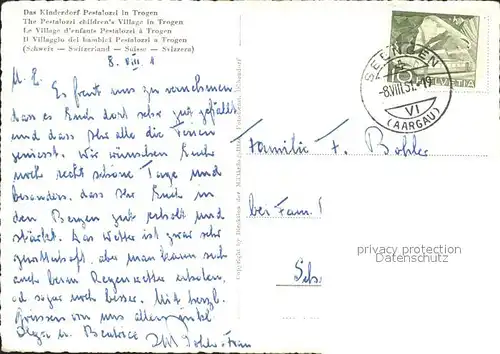 Das Kinderdorf Pestalozzi in Trogen
The Pestalozzi children's Village in Trogen
Le Village d'enfants Pestalozzi à Trogen
Il Villaggio dei bambini Pestalozzi a Trogen
(Schweiz — Switzerland — Suisse — Svizzera)
8. VIII
M. L.
Es freut uns zu vernehmen
dass es Euch dort sehr gut gefällt
und dass Ihr alle die Ferien
geniesst. Wir wünschen Euch
noch recht schöne Tage und
besonders, dass Ihr Euch in
den Bergen gut erholt und
stärkt. Das Wetter ist zwar sehr
, aber man kann sich
auch beim Regenwetter erholen,
od sogar noch besser. Mit herzl.
Grüssen von uns allen
Beatrice
Familie F. Bohler
bei Fam.
SEENGEN
-8.VIII.51.-19
VI
(AARGAU)
HELVETIA
5
privacy protection
Datenschutz